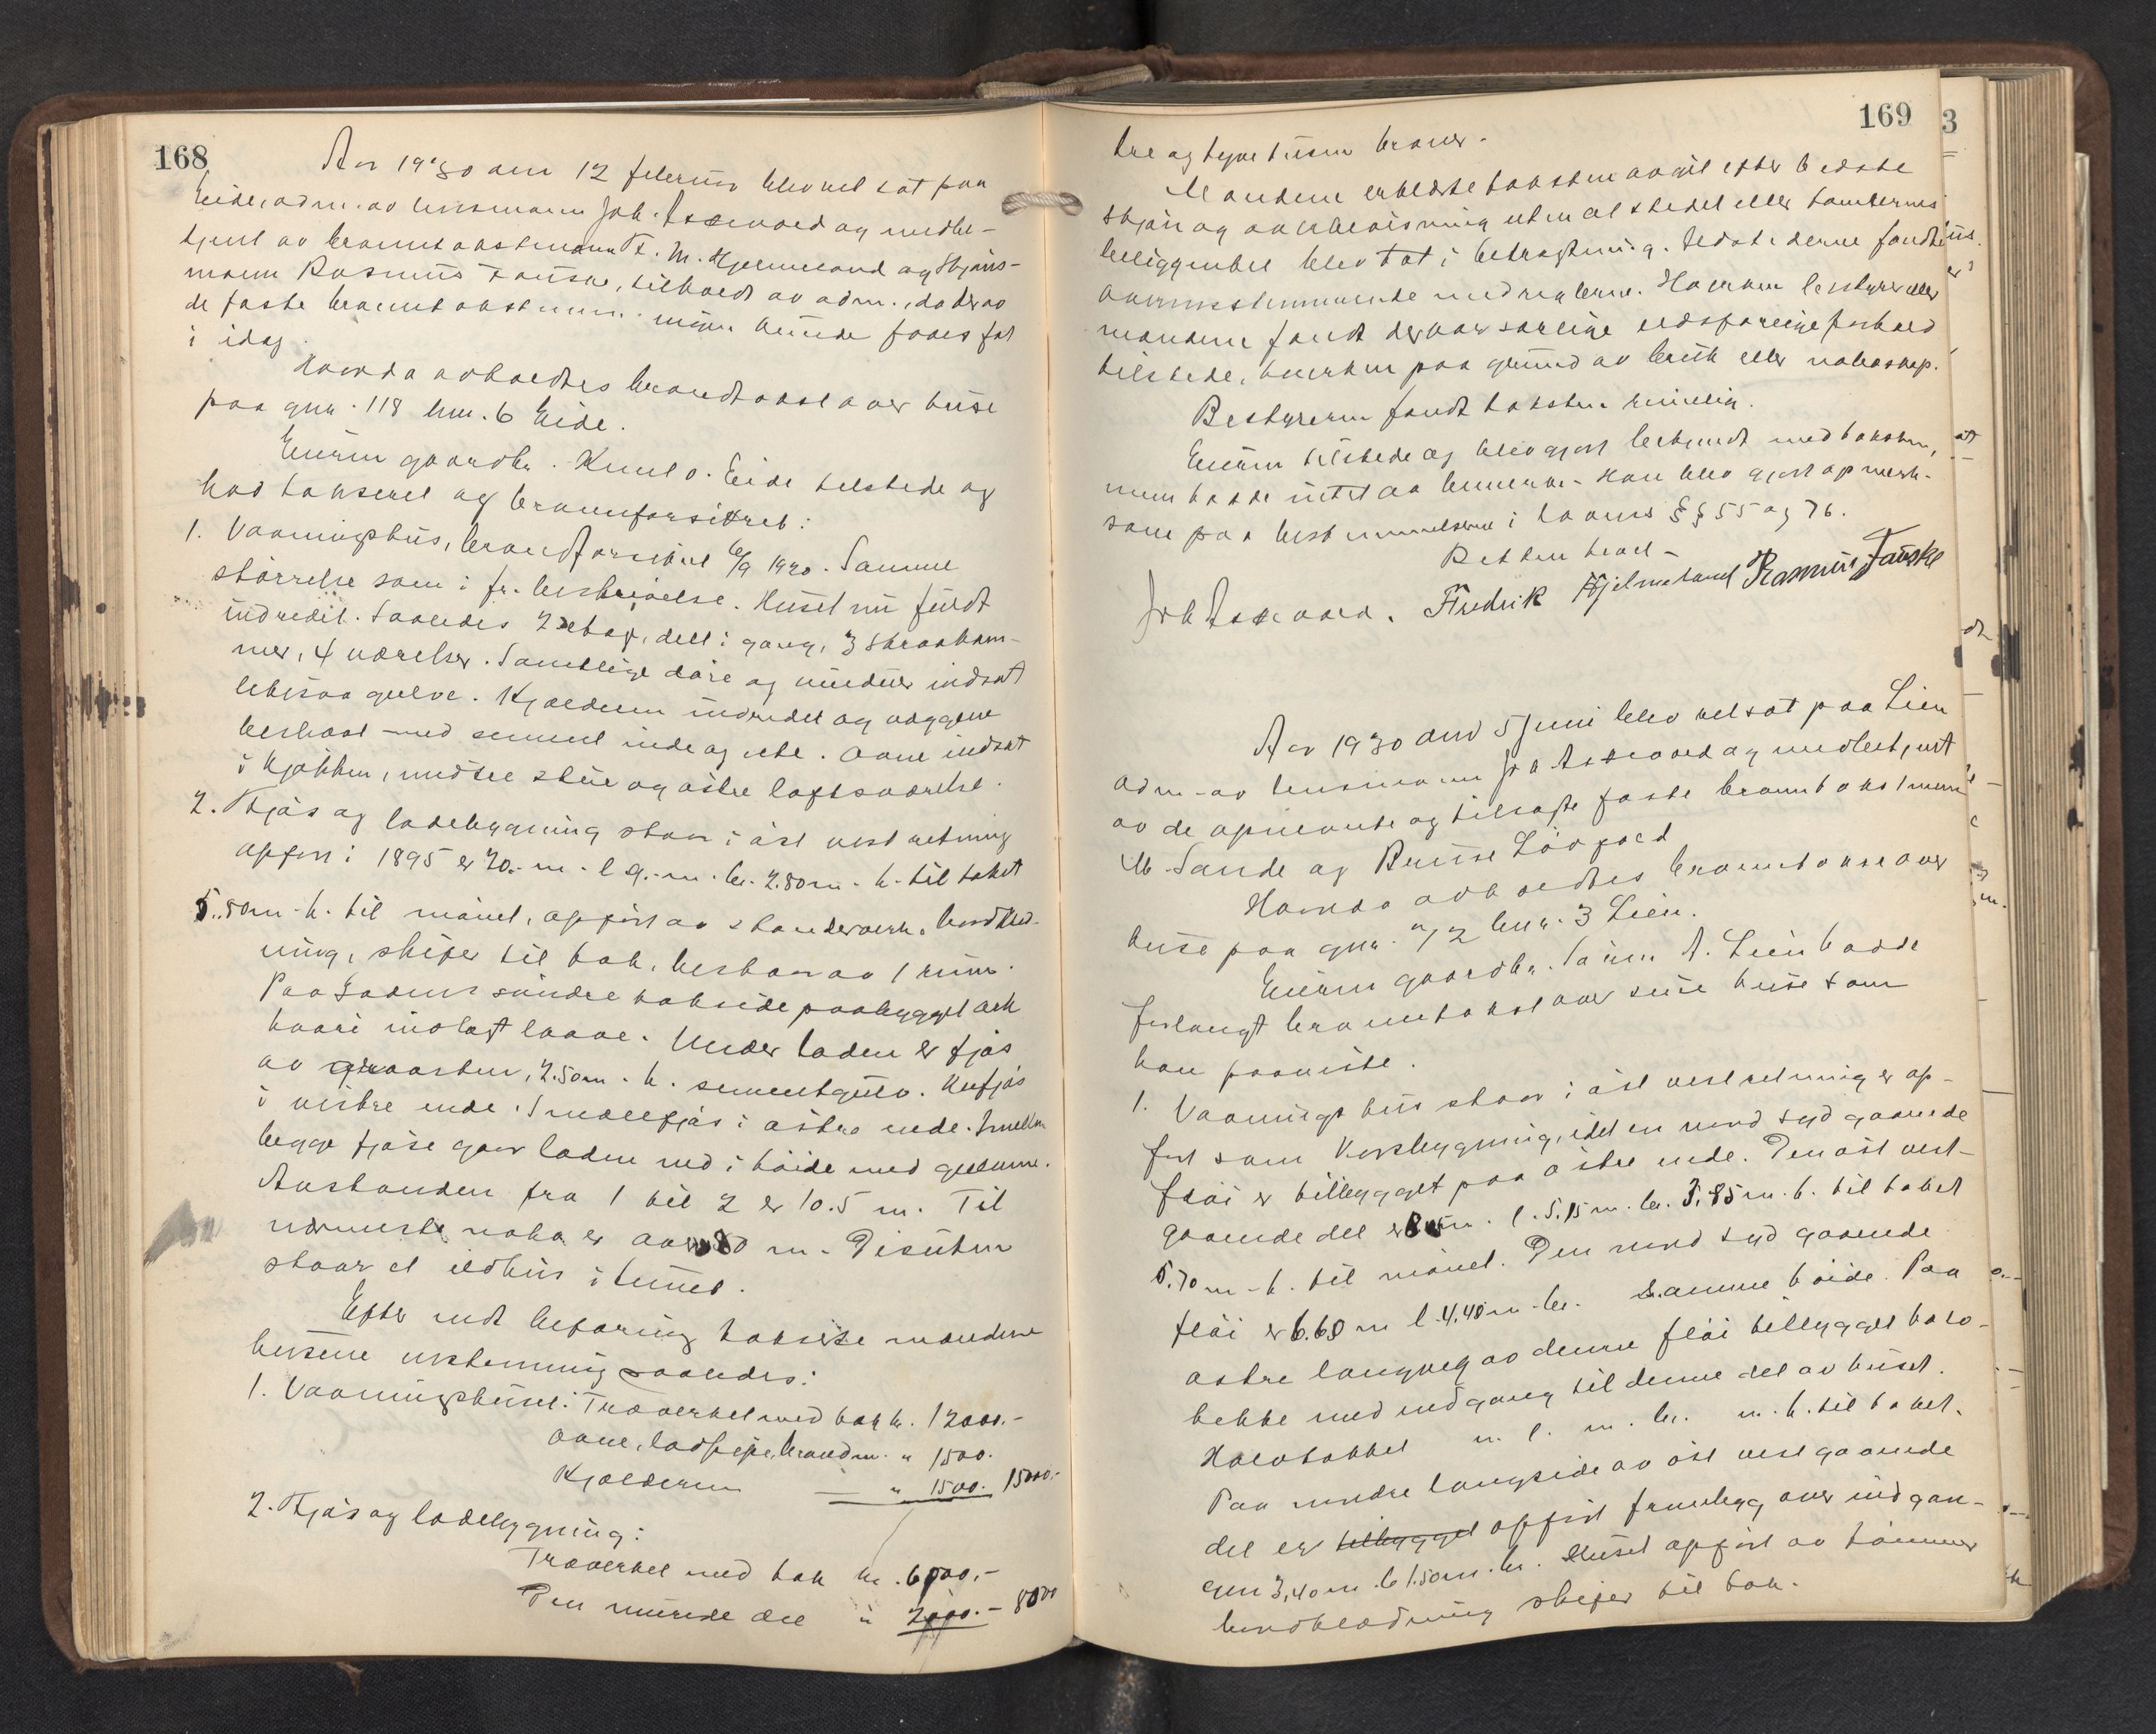 168
Aar 1930 den 12 februar blev ret sat paa
Eide, adm. av lensmann Joh. og medbe-
tjent av branntakstmann F. M. Hjelmeland og Skjøns-
mann Rasmus Fauske, tilkaldt av adm., da der av
de faste branntakstmenn ingen kunde faaes fat
i idag.
Hvorda avholdtes brandtakst over huse
paa gnr. 118 bnr. 6 Eide.
Eieren gaardbr. Knut O. Eide tilstede og
bad taksert og brannforsikret:
1. Vaaningshus, brandforsikret 6/9 1920. Samme
størrelse som i fr. beskrivelse. Huset nu fuldt
indredet. Saaledes 2 etage, delt i gang, 3 skraakam-
mer, 4 værelser. Samtlige døre og vinduer indsat
likesaa gulve. Kjælderen indredet og væggene
beskast med sement inde og ute. Ovne indsat
i kjøkken, nedre stue og østre loftsværelse.
2. Fjøs og ladebygning staar i øst vest retning
opført i 1895 er 20.- m. l. 9.- m. br. 2.80 m. h. til taket
5.80 m. h. til mønet, opført av standerverk, bordklæd-
ning, skifer til tak, bestaar av 1 rum.
Paa ladens søndre takside paabygget ark
hvori indlagt laave. Under laden er fjøs
av graasten, 2.50 m. h. sementgulv. Kufjøs
i vestre ende. Smalefjøs i østre ende. Imellem
begge fjøse gaar laden ned i høide med gulvene.
Avstanden fra 1 til 2 er 10.5 m. Til
nærmeste nabo er over 80 m. Desuten
staar et ildhus i tunet.
Efter endt befaring takserte mændene
husene enstemmig saaledes:
1. Vaaningshuset: Træverket med tak kr. 12000.-
Ovne, ladpipe, brandm. " 1500.
Kjælderen — " 1500. 15000.-
2. Fjøs og ladebygning:
Træverket med tak kr. 6000.-
Den murede del " 2000.- 8000
169
tre og tyve tusen kroner.
Mændene erklærte taksten avgit efter bedste
skjøn og overbevisning uten at stedet eller tomternes
beliggenhet blev tat i betragtning. Ildstederne fandtes
overensstemmende med reglerne. Hverken bestyrer eller
mændene fandt der var særlige ildsfarlige forhold
tilstede, hverken paa grund av bruk eller naboskap.
Bestyreren fandt taksten rimelig.
Eieren tilstede og blev gjort bekjendt med taksten,
men hadde intet at bemerke. Han blev gjort opmerk-
som paa bestemmelsene i lovens §§ 55 og 76.
Retten hevet -
Fredrik Hjelmeland Rasmus Fauske
Aar 1930 den 5 juni blev ret sat paa Lien
adm. av lensmann og medbetjent
av de opnevnte og tilsagte faste branntakstmenn
M. Sande og
Hvorda avholdtes branntakst over
huse paa gnr. 72 bnr. 3 Lien.
Eieren gaardbr. A. Lien hadde
forlangt branntakst over sine huse som
han paaviste.
1. Vaaningshus staar i øst vest retning er op-
ført som Korsbygning, idet en nord syd gaaende
fløi er tilbygget paa østre ende. Den øst vest-
gaaende del er m. l. 5.15 m. br. 3.85 m. h. til taket
5.70 m. h. til mønet. Den nord syd gaaende
fløi er 6.60 m l. 4.40 m. br. samme høide. Paa
østre langveg av denne fløi tilbygget halv-
tekke med indgang til denne del av huset.
Halvtækket m. l. m. br. m. h. til taket.
Paa nordre langside av øst vest gaaende
del er tilbygget opført frambygg over indgan-
gen 3,40 m. l. 1.50 m. br. Huset opført av tømmer
bordklædning skifer til tak.